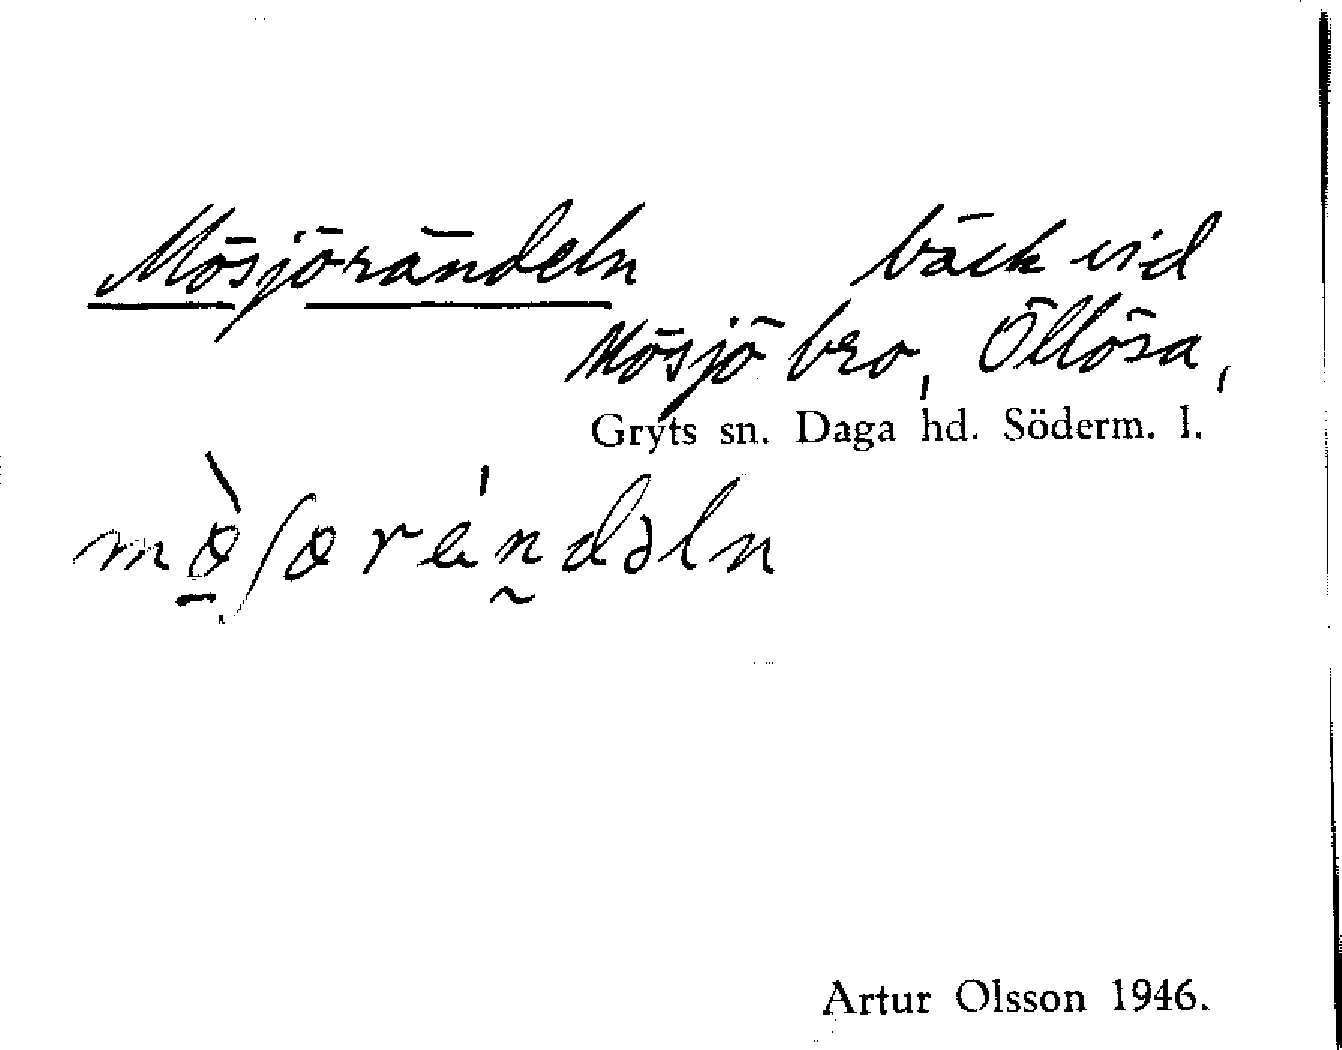 Mösjörändeln bäck vid
Mösjö bro, Öllösa,
Gryts sn. Daga hd. Söderm. l.
mø̀ʃørändəln
Artur Olsson 1946.